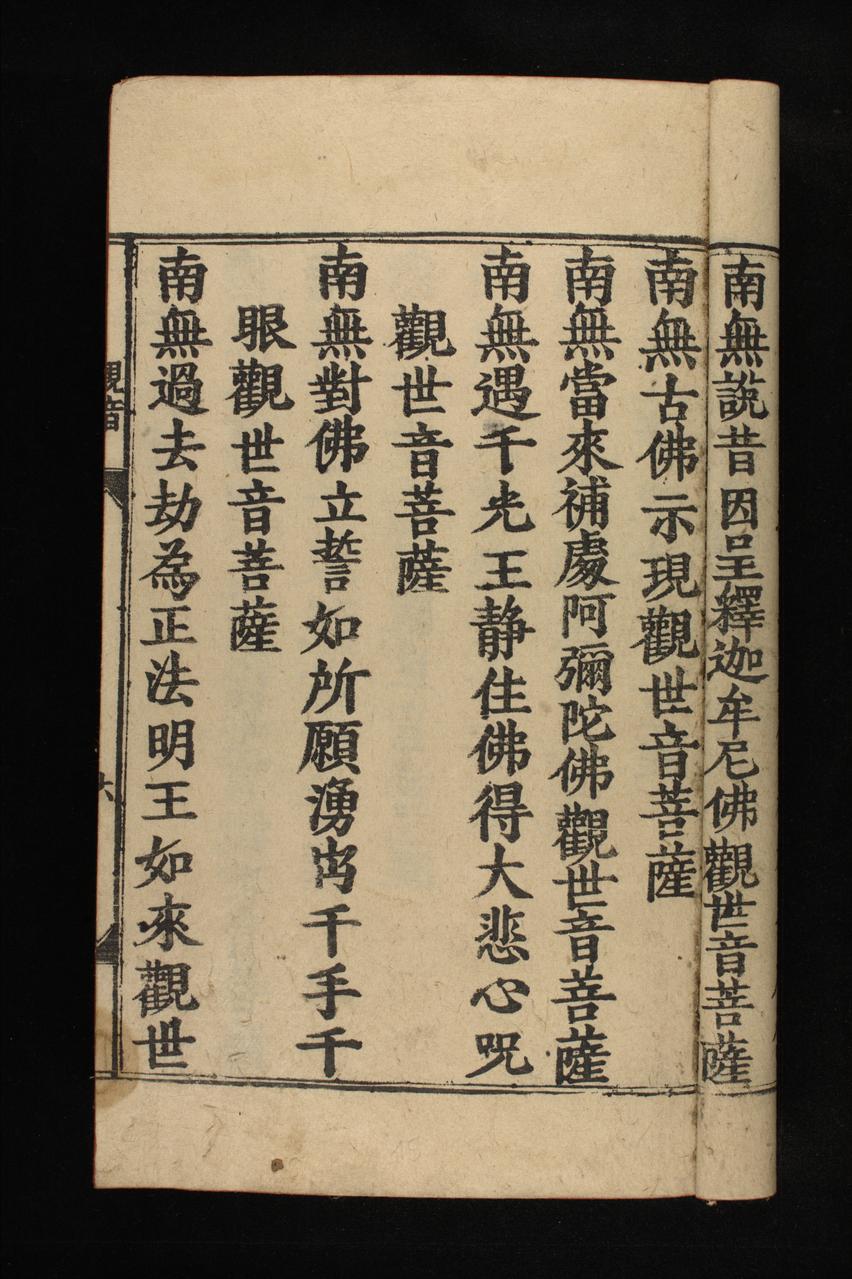 南無説昔因呈釋迦牟尼佛觀世音菩薩
南無古佛示現觀世音菩薩
南無當來補處阿彌陀佛觀世音菩薩
南無遇千光王静住佛得大悲心呪
觀世音菩薩
南無對佛立誓如所願湧出千手千
眼觀世音菩薩
南無過去劫為正法明王如來觀世
觀音
六